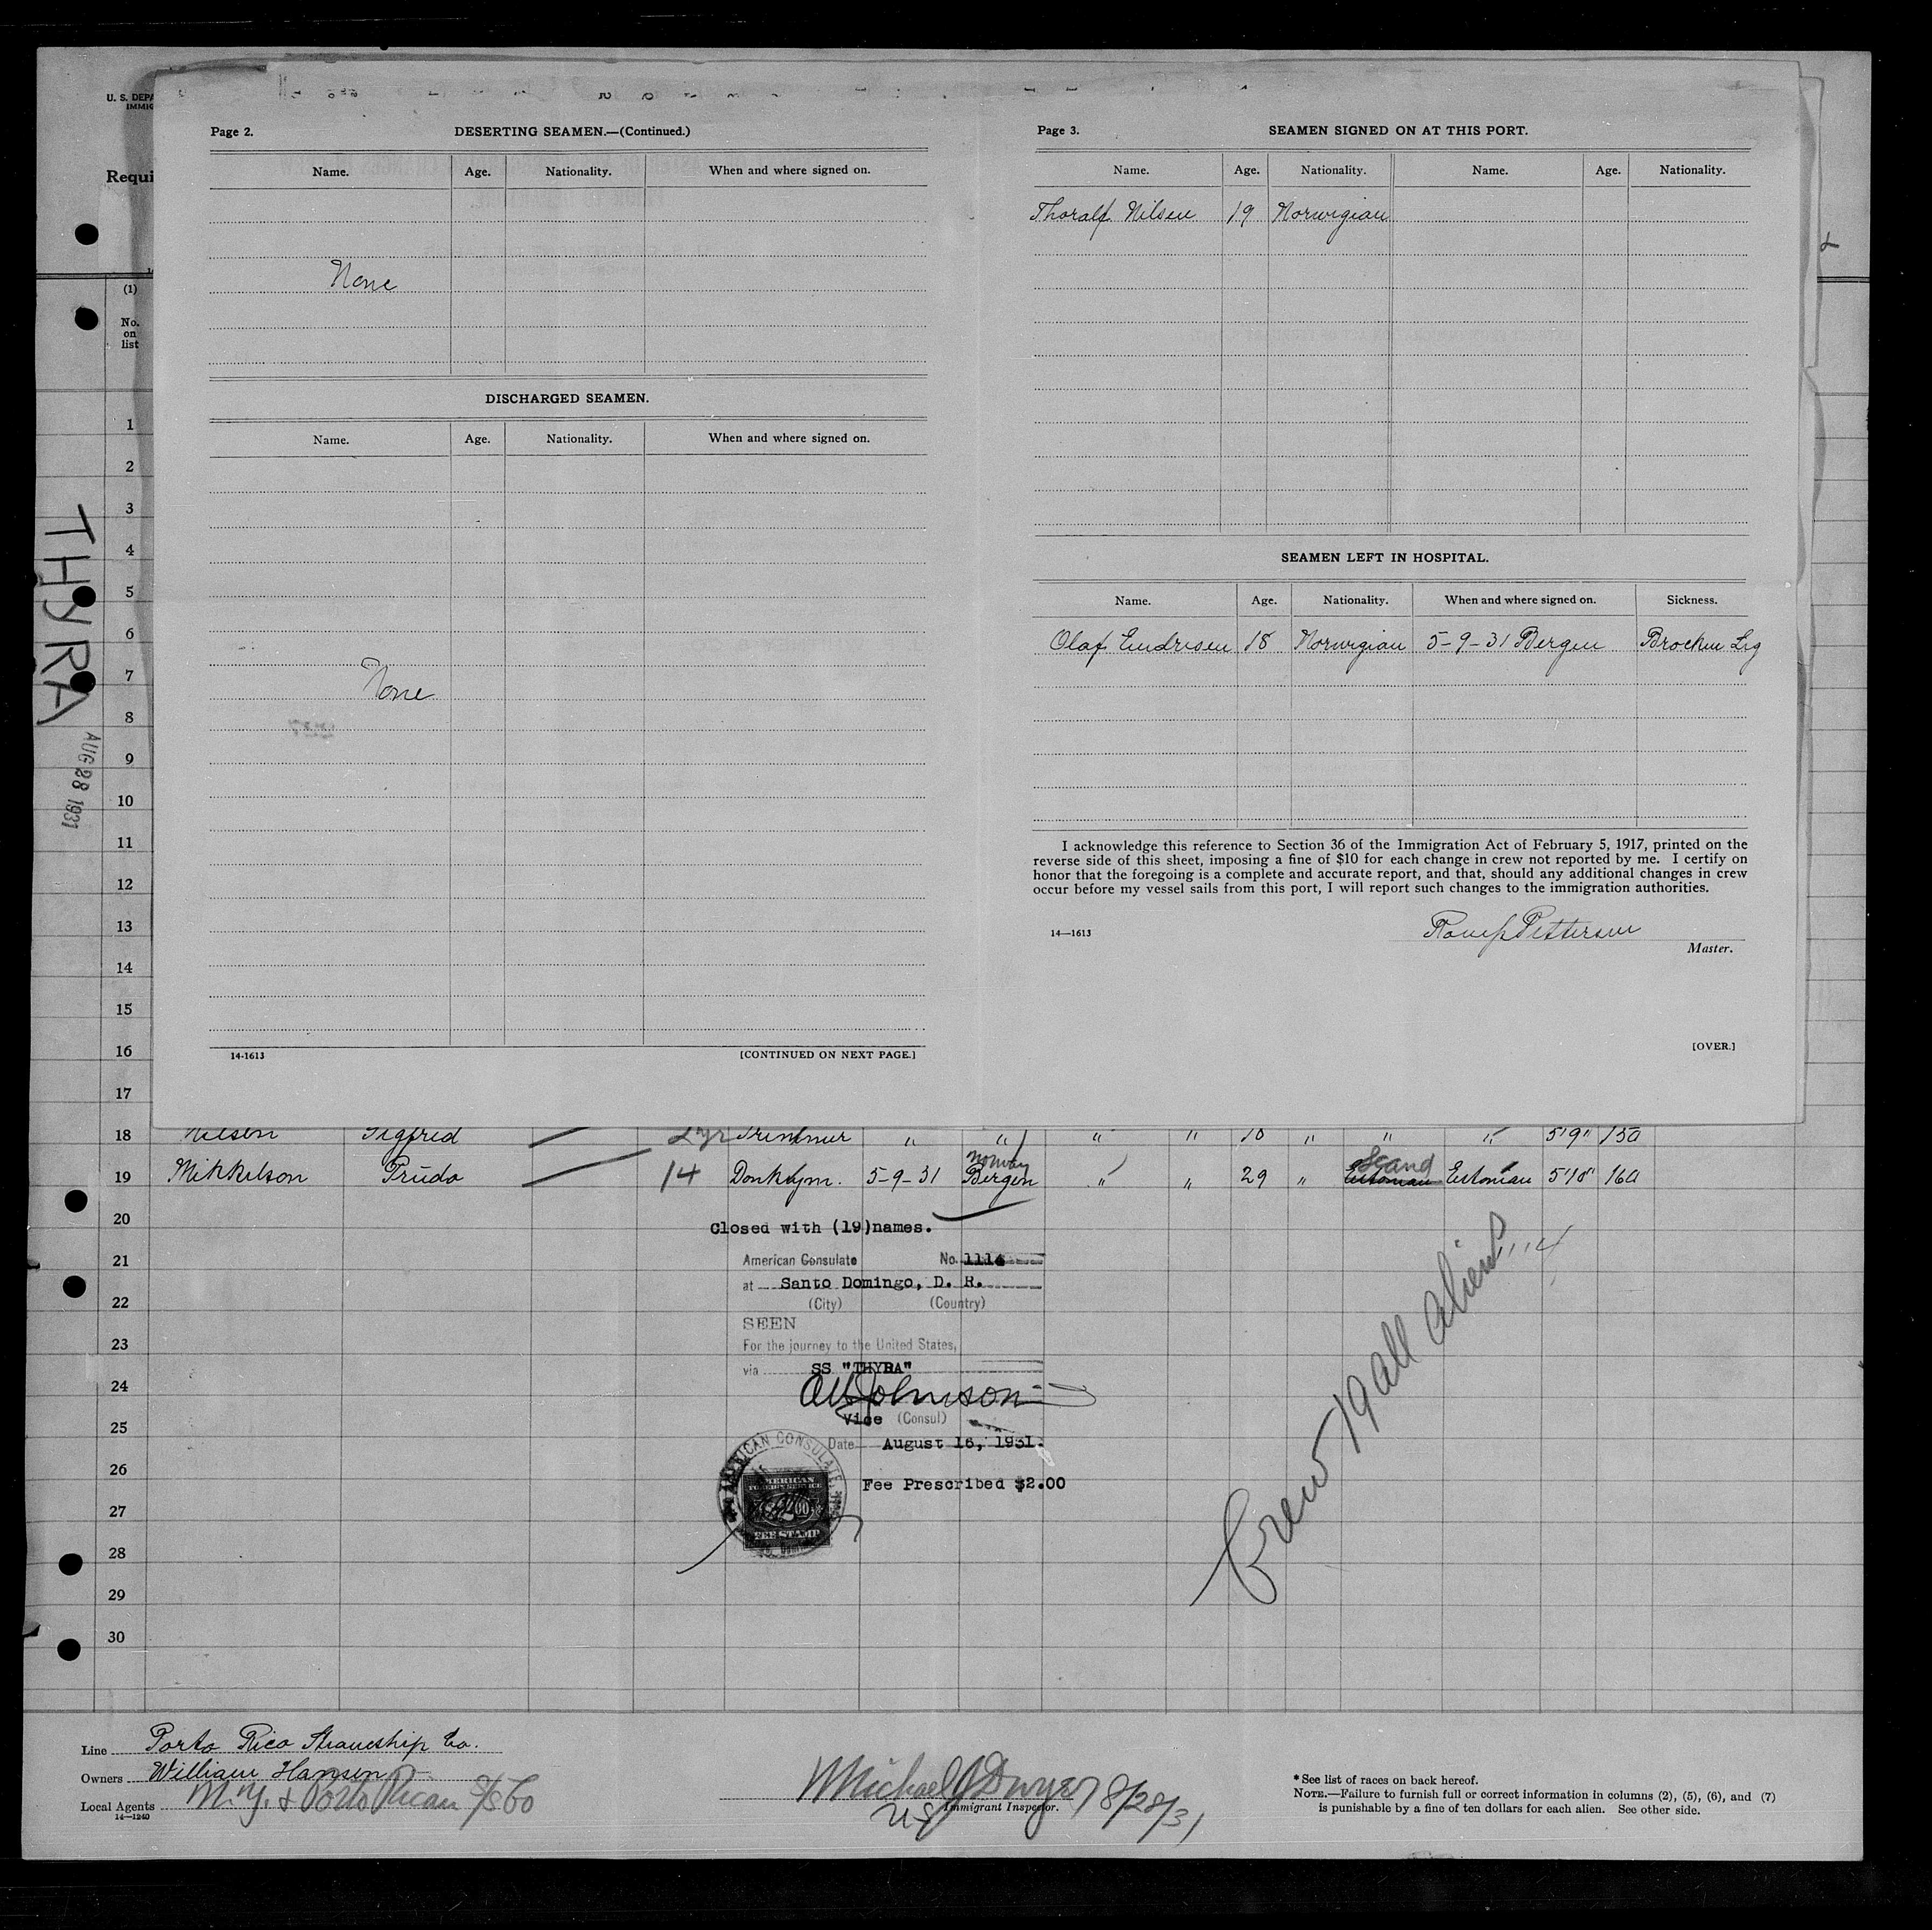 U. S. DEPA
IMMIG
Requi
Page 2. DESERTING SEAMEN.—(Continued.)
Name. Age. Nationality. When and where signed on.
None
DISCHARGED SEAMEN.
Name. Age. Nationality. When and where signed on.
None
14-1613 [CONTINUED ON NEXT PAGE.]
Page 3. SEAMEN SIGNED ON AT THIS PORT.
Name. Age. Nationality. Name. Age. Nationality.
Thoralf Nilsen 19 Norwigian
SEAMEN LEFT IN HOSPITAL.
Name. Age. Nationality. When and where signed on. Sickness.
Olaf Endresen 18 Norwigian 5-9-31 Bergen Brocken Leg
I acknowledge this reference to Section 36 of the Immigration Act of February 5, 1917, printed on the
reverse side of this sheet, imposing a fine of $10 for each change in crew not reported by me. I certify on
honor that the foregoing is a complete and accurate report, and that, should any additional changes in crew
occur before my vessel sails from this port, I will report such changes to the immigration authorities.
14—1613 Pettersen
Master.
[OVER.]
THYRA
AUG 28 1931
(1)
No.
on
list
1
2
3
4
5
6
7
8
9
10
11
12
13
14
15
16
17
18 Nilsen Sigfred 2yr Trimmer " " " " 18 " " " 5'9" 150
Norway Scand
19 Mikkelson Priido 14 Donkeym. 5-9-31 Bergen " " 29 " Estonian Estonian 5'10" 160
20
21
22
23
24
25
26
27
28
29
30
Closed with (19)names.
American Consulate No. 1114
at Santo Domingo, D. R.
(City) (Country)
SEEN
For the journey to the United States,
via SS "THYRA"
Johnson
Vice (Consul)
Date August 15, 1931.
Fee Prescribed $2.00
AMERICAN CONSULATE
AMERICAN
FOREIGN SERVICE
FEE STAMP
Crew 19 all aliens
Line Porto Rico Steamship Co.
Owners William Hansen
Local Agents N.Y. & Porto Rican S/S Co
14—1240
Michael J Dwyer 8/28/31
Immigrant Inspector.
* See list of races on back hereof.
NOTE.—Failure to furnish full or correct information in columns (2), (5), (6), and (7)
is punishable by a fine of ten dollars for each alien. See other side.